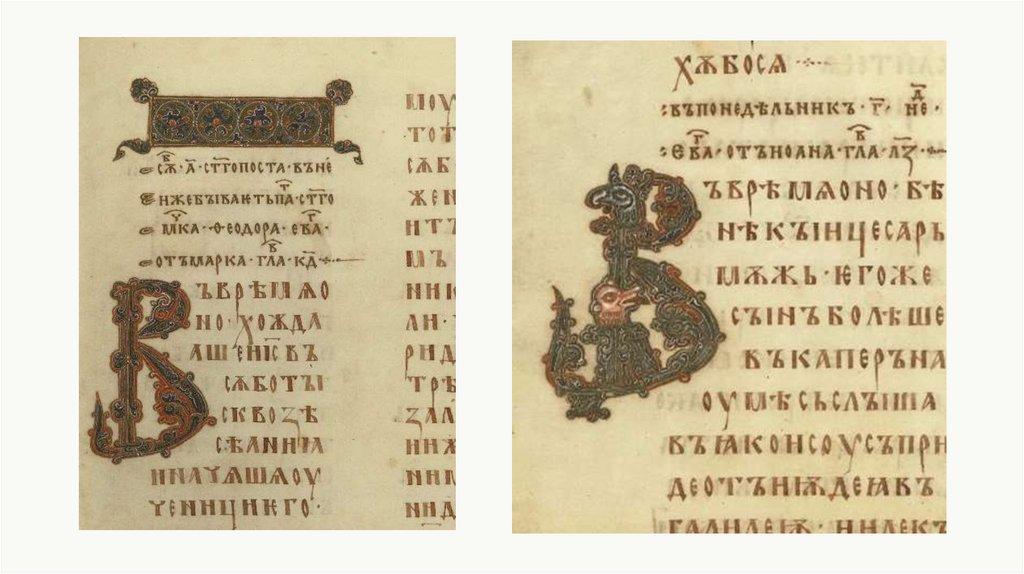 сѫ҃ⷡ · а҃ · ст҃гопоста · въне҃
Еижебъіваѥтьпаⷨ · ст҃го
мⷱ҇ка · ѳеодора · еваⷢ ·
отъмарка · глаⷡ · кд҃ ·
Въврѣмѧо
но · хожда
ашеиⷭ҇въ
сѫботъі
сквозѣ
сѣаниꙗ
ꙇначѧшѧоу
ченициѥго ·
моу
тот
сѫб
жен
итъ
мъ
ник
ли ·
рид
трѣ
зал
ниж
ним
нид
хѫбосѧ
въпонедѣльникъ · г҃ · не҃ⷣ ·
еваⷢ · отъиоана · глаⷡ · лꙁ҃ ·
Въврѣмѧоно · бѣ
нѣкъіицесарь
мѫжь · ѥгоже
съінъболѣше
въкаперъна
оумѣсьслъіша
въꙗкоисоусъпри
деотъиѭдеѩвъ
галилеѭ · ииде къ